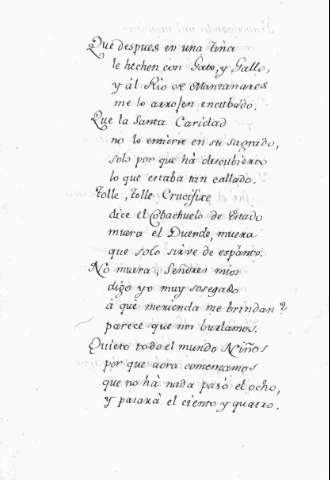 Que despues en una tina
le hechen con Gato, y Gallo,
y al Rio de Manzanares
me lo arrojen encubado.
Que la Santa Caridad
no lo entierre en su sagrado,
solo por que hà descubierto
lo que estaba tan callado.
Tolle, tolle Crucifixe
dice el Cobachuelo de Estado
muera el Duende, muera
que solo sirve de espanto.
No muera, Señores mios
digo yo muy sosegado
à que merienda me brindan?
parece que nos burlamos.
Quieto todo el mundo Niños
por que aora comenzamos
que no hà nada pasó el ocho,
y pasarà el ciento y quatro.